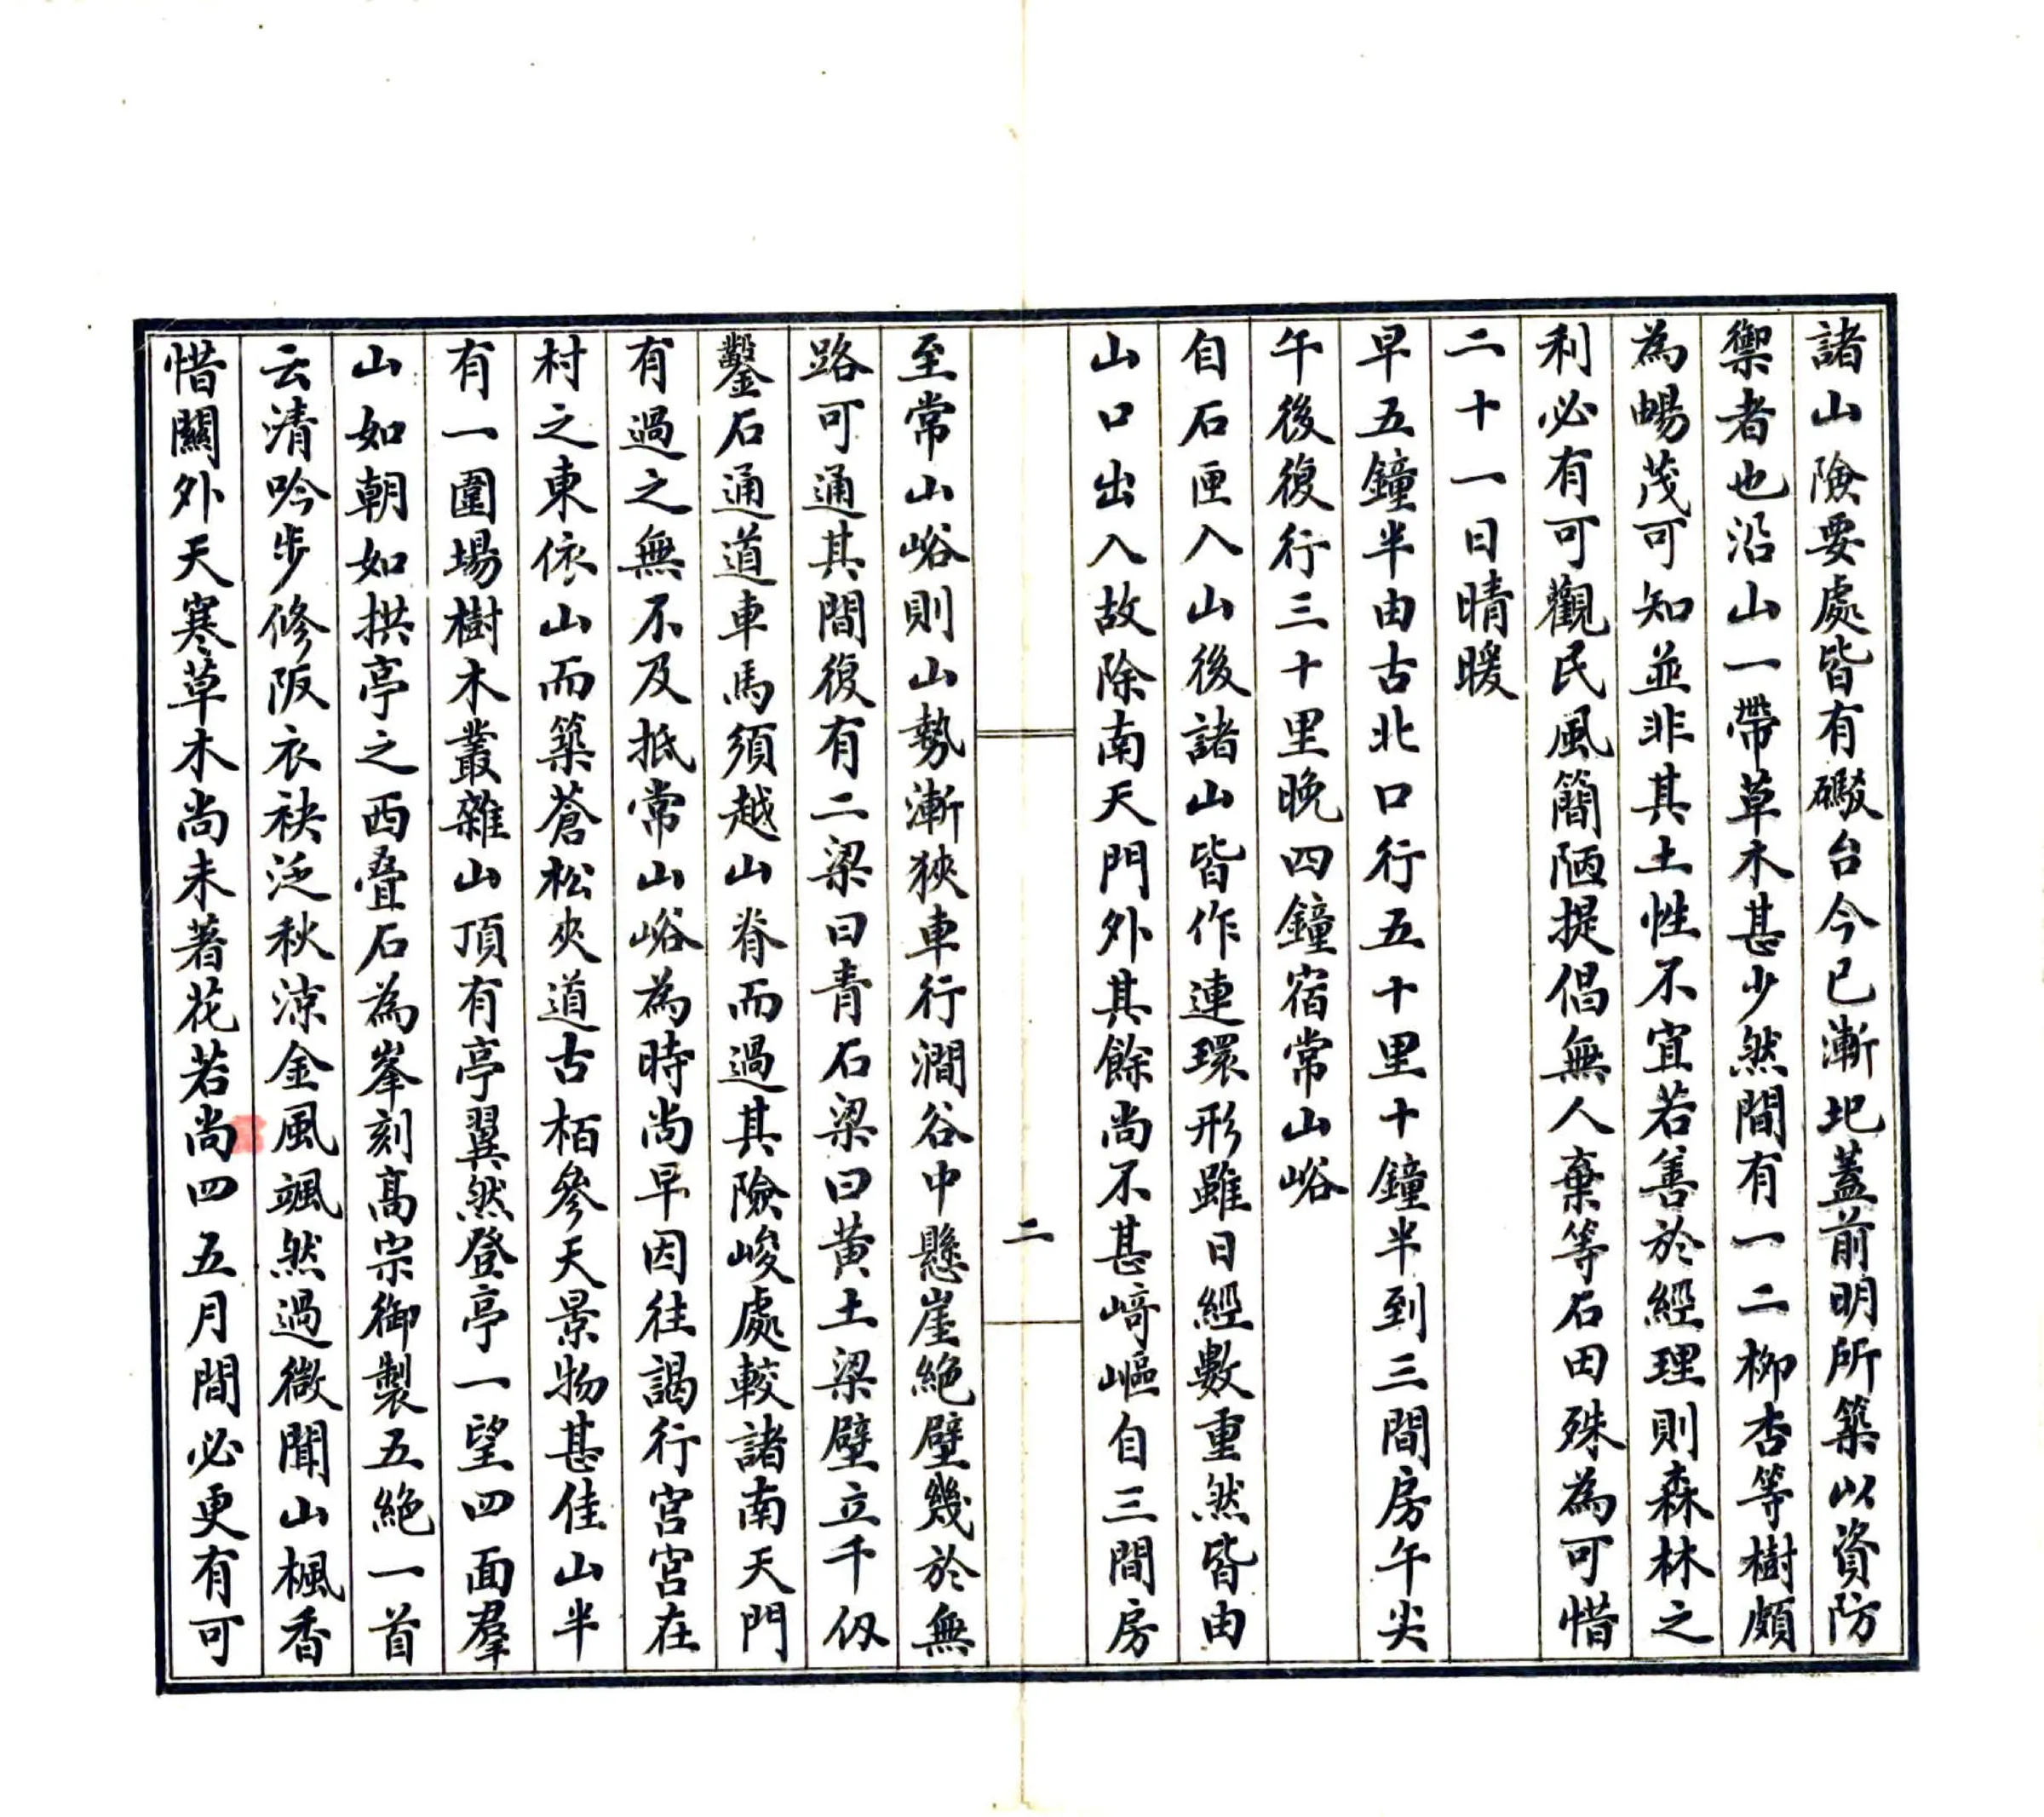 諸山險要處皆有礮台今已漸圮蓋前明所築以資防
禦者也沿山一帶草木甚少然間有一二柳杏等樹頗
為暢茂可知並非其土性不宜若善於經理則森林之
利必有可觀民風簡陋提倡無人棄等石田殊為可惜
二十一日晴暖
早五鐘半由古北口行五十里十鐘半到三間房午尖
午後復行三十里晚四鐘宿常山峪
自石匣入山後諸山皆作連環形雖日經數重然皆由
山口出入故除南天門外其餘尚不甚﨑嶇自三間房
二
至常山峪則山勢漸狹車行澗谷中懸崖絶壁幾於無
路可通其間復有二梁曰青石梁曰黄土梁壁立千仭
鑿石通道車馬須越山脊而過其險峻處較諸南天門
有過之無不及抵常山峪為時尚早因往謁行宮宮在
村之東依山而築蒼松夾道古栢參天景物甚佳山半
有一圍場樹木叢雜山頂有亭翼然登亭一望四面羣
山如朝如拱亭之西叠石為峯刻高宗御製五絶一首
云清吟步修阪衣袂泛秋涼金風颯然過微聞山楓香
惜關外天寒草木尚未著花若尚四五月間必更有可